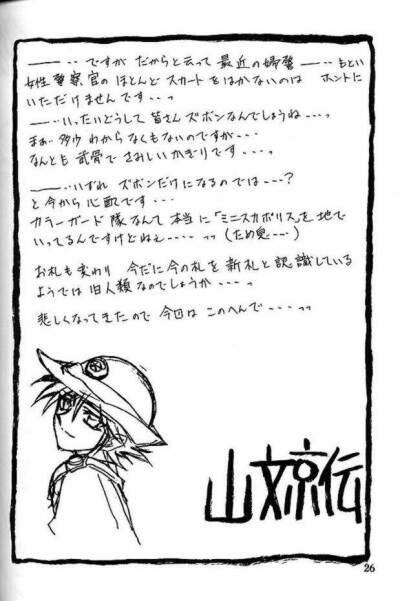 ――‥ ですが だからと云って 最近の婦警――‥もとい
女性警察官の ほとんど スカートを はかないのは ホントに
いただけませんです‥‥っ
――‥いったいどうして 皆さん ズボンなんでしょうね‥‥っ
まぁ 多少 わからなくもないのですが‥‥
なんとも 武骨で さみしいかぎりです‥‥っ
――‥いずれ ズボンだけになるのでは‥‥?
と今から 心配です‥‥
カラーガード 隊なんて 本当に「ミニスカポリス」を 地で
いってるんですけどねえ‥‥っっ (ため息‥‥)
お札も変わり 今だに今の札を 新札と 認識している
ようでは 旧人類 なのでしょうか‥‥っ
悲しくなってきたので 今回は このへんで‥‥っっ
山文京伝
26